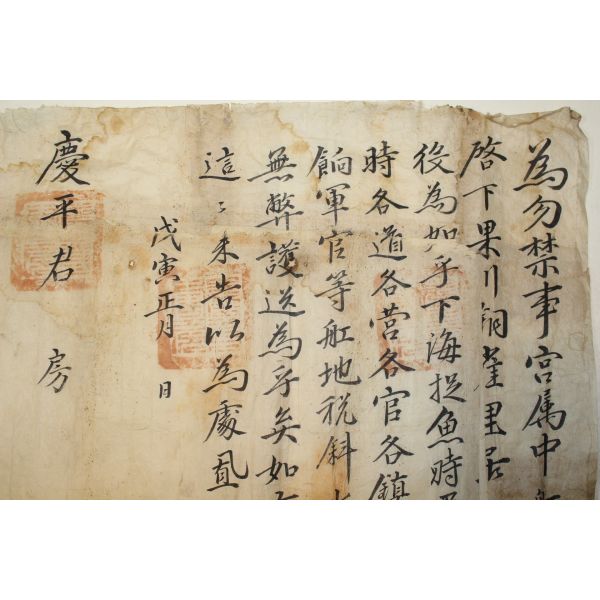 為勿禁事宮属中
啓下果川銅雀里居
役為如乎下海捉魚時
時各道各营各官各鎮
餉軍官等舡地稅斜
無弊護送為乎矣如
這〻来告以為處置
戊寅正月 日
慶平君 房